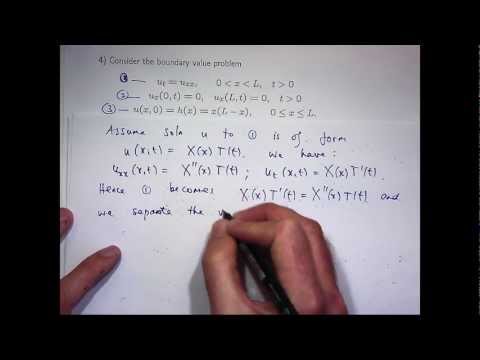 4) Consider the boundary value problem
① — u_t = u_xx, 0 < x < L, t > 0
② — u_x(0, t) = 0, u_x(L, t) = 0, t > 0
③ — u(x, 0) = h(x) = x(L − x), 0 ≤ x ≤ L.
Assume soln u to ① is of form
u(x,t) = X(x) T(t). We have:
u_xx(x,t) = X''(x) T(t) ; u_t(x,t) = X(x) T'(t).
Hence ① becomes X(x) T'(t) = X''(x) T(t) and
we separate the